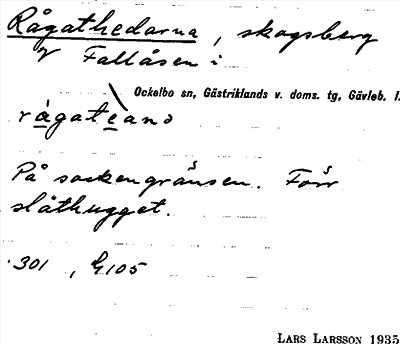 Rågathedarna, skogsberg
V Fallåsen i
Ockelbo sn, Gästriklands v. doms. tg, Gävleb. l.
På sockengränsen. Förr
slåthugget.
301, G105
LARS LARSSON 1935